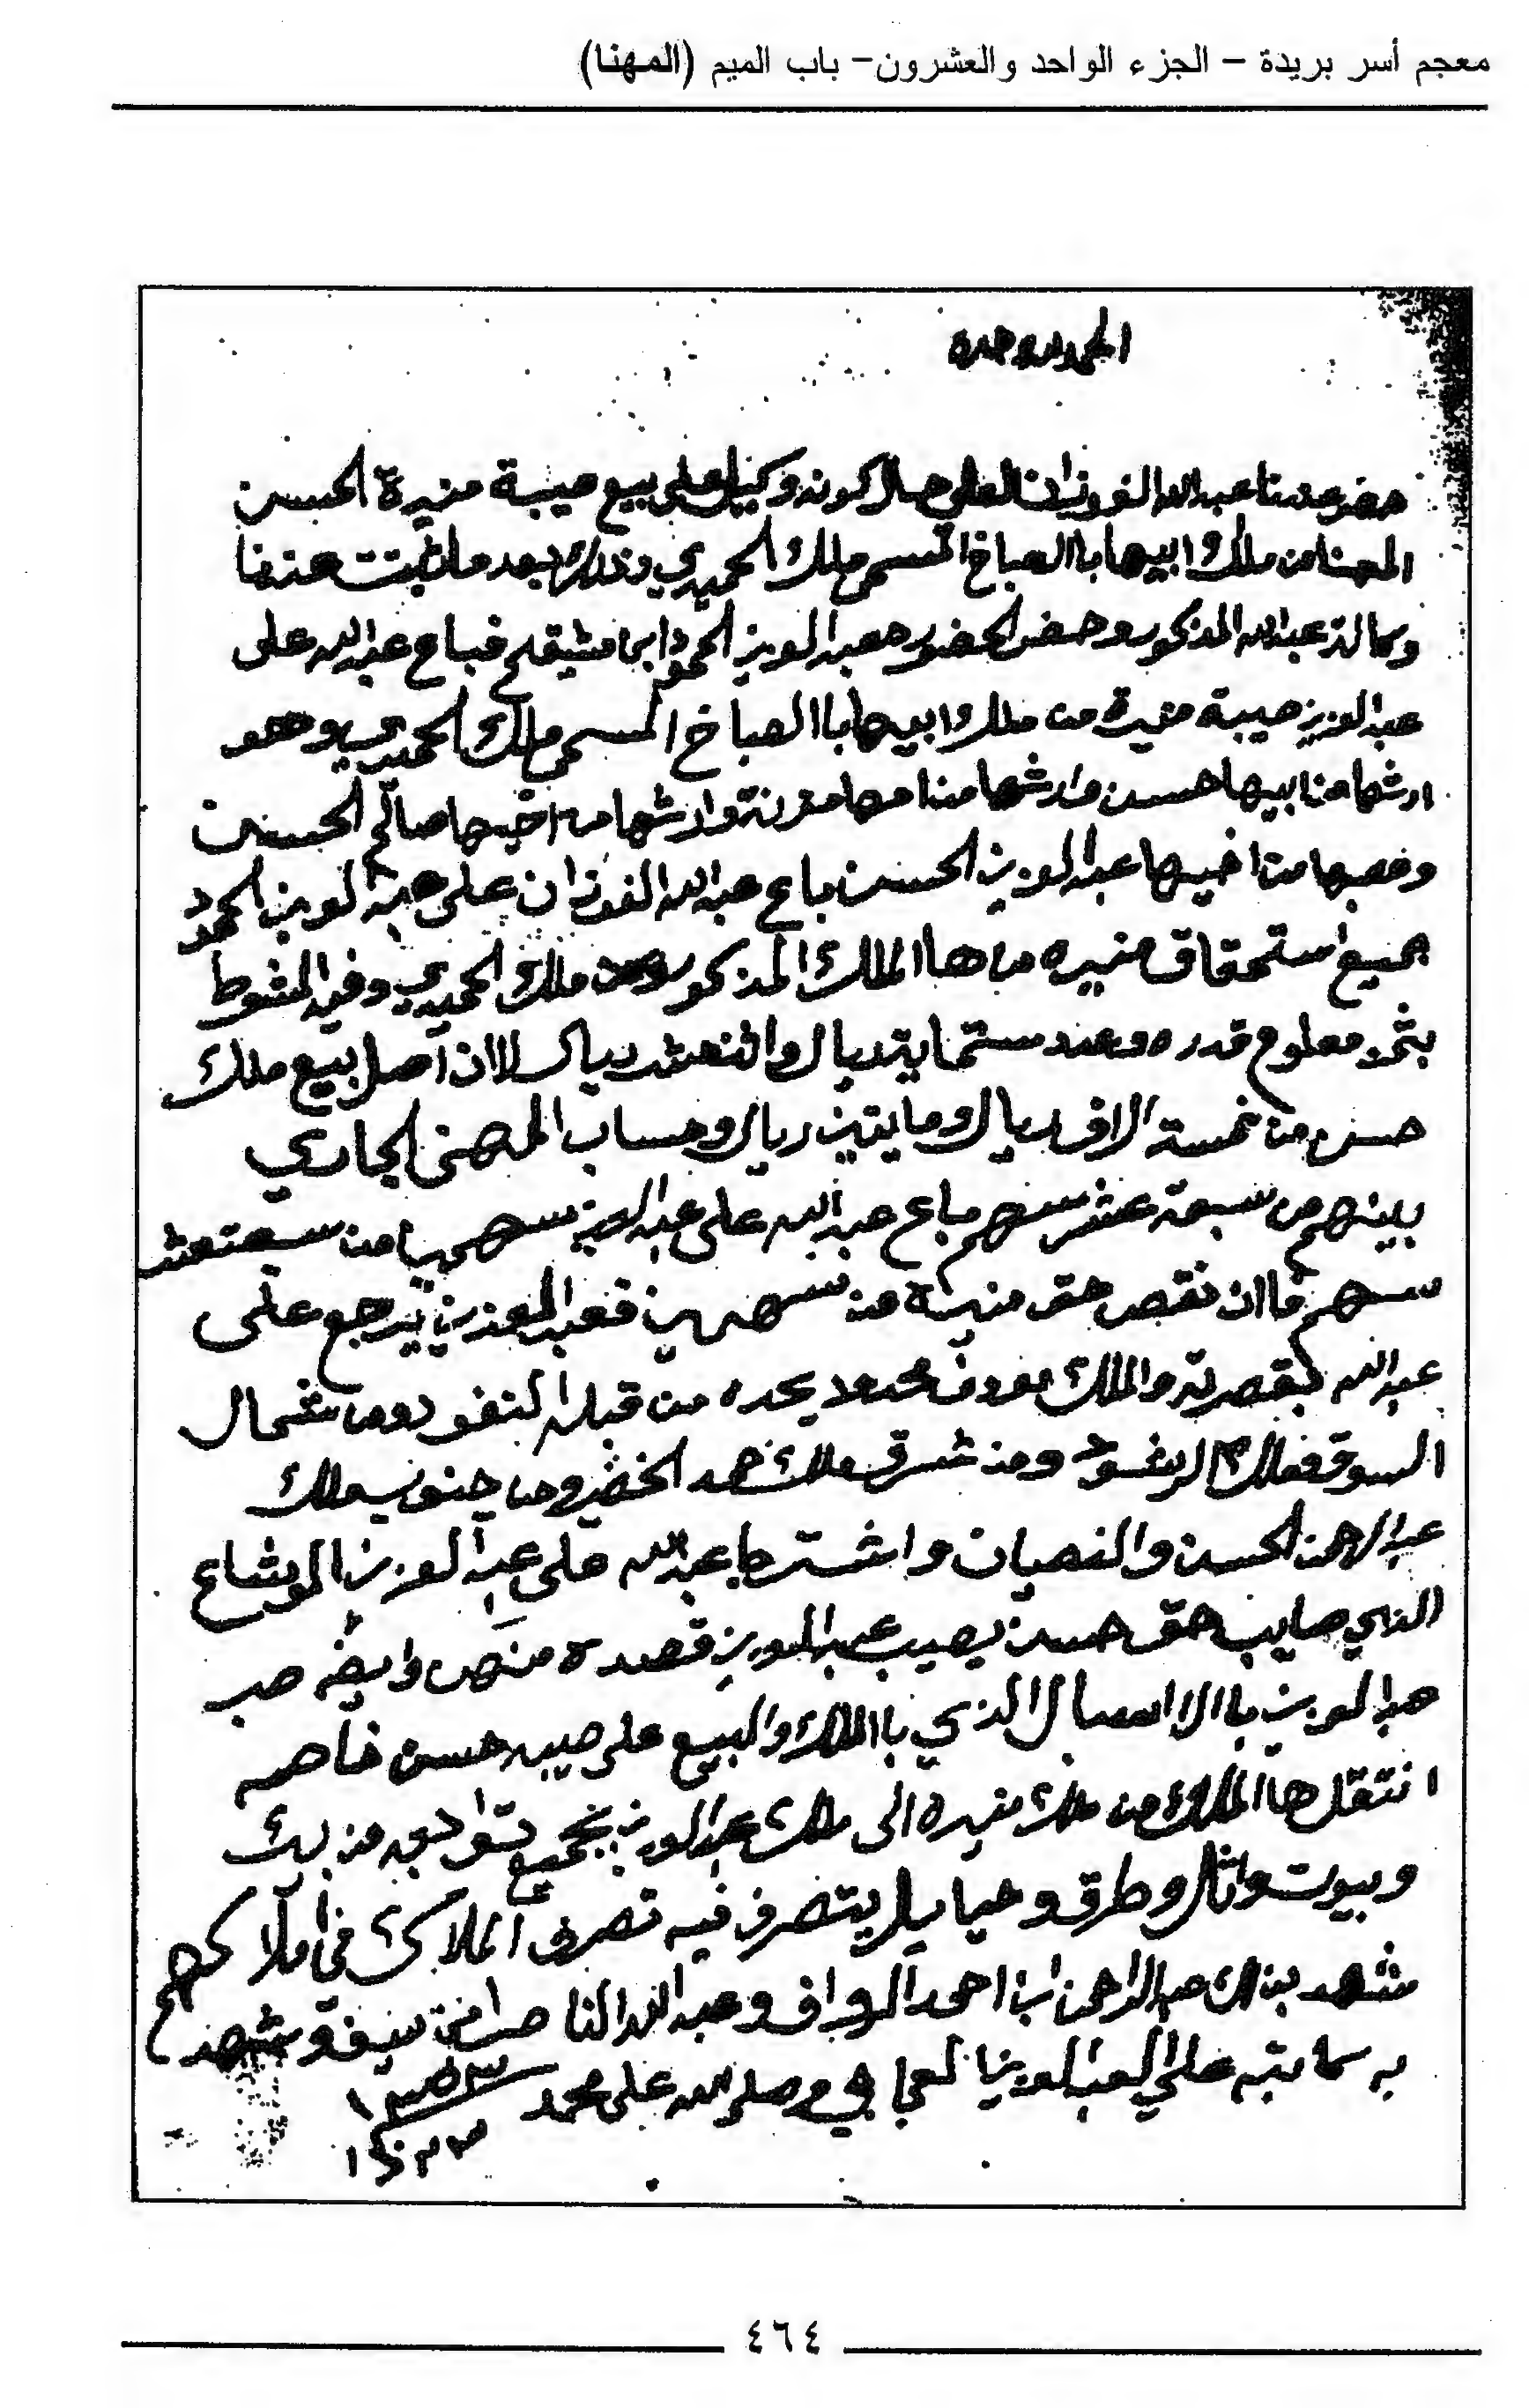 معجم أسر بريدة – الجزء الواحد والعشرون– باب الميم (المهنا)
الحمد لله وحده
حضر عندنا عبدالله الفوزان العلي حال كونه وكيل على بيع صيبة منيرة الحسن
المهنا من ملك ابيها باالصباخ المسمى ملك الحميدي وذلك بعد ما ثبتت عندنا
وكالة عبدالله المذكور وحضر لحضوره عبدالعزيز الحمود ابن مشيقح فباع عبدالله على
عبدالعزيز صيبة منيرة من ملك ابيها باالصباخ المسمى ملك الحميدي وهو
ارثها من ابيها حسن وارثها من امها مزنة وارثها من اخيها صالح الحسن
من اخيها عبدالعزيز الحسن باع عبدالله الفوزان على عبدالعزيز الحمود
جميع استحقاق منيره من هاالملك المذكور ملك الحميدي وفيد المشوط
بثمن معلوم قدره وعدد ستماية ريال واثنعشر ريال الان اصل بيع ملك
حسن من خمسة الاف ريال ومايتين ريال وحساب المهنى الجاري
بينهم من سبعة عشر سهم باع عبدالله على عبدالعزيز سهمين من سبعتعشر
سهم فاان نقص حق منيرة من سهمين فعبدالعزيز يرجع على
عبدالله بقصريته والملك معروف محدود يحده من قبله النفود ومن شمال
السوق وملك الربعسود ومن شرق ملك حمد الخضير ومن جنوب ملك
عبدالرحمن الحسن والنصيان واشترط عبدالله على عبدالعزيز المشاع
الذي صايب حق حسن يصيب عبدالعزيز قصده منهن وايضا صب
عبدالعزيز باالاسبال الذي باالملك والبيع على صيبه حسن خاصه
انتقل هاالملك من ملك منيره الى ملك عبدالعزيز بجميع توابعه من برك
وبيوت واثل وطرق وحيايل يتصرف فيه تصرف الملاك في املاكهم
شهد بذلك عبدالرحمن ابن احمد الرواف وعبدالله الناصر ابن سيف وشهد
به كاتبه علي العبدالعزيز العجاجي وصلى الله على محمد
٤٦٤